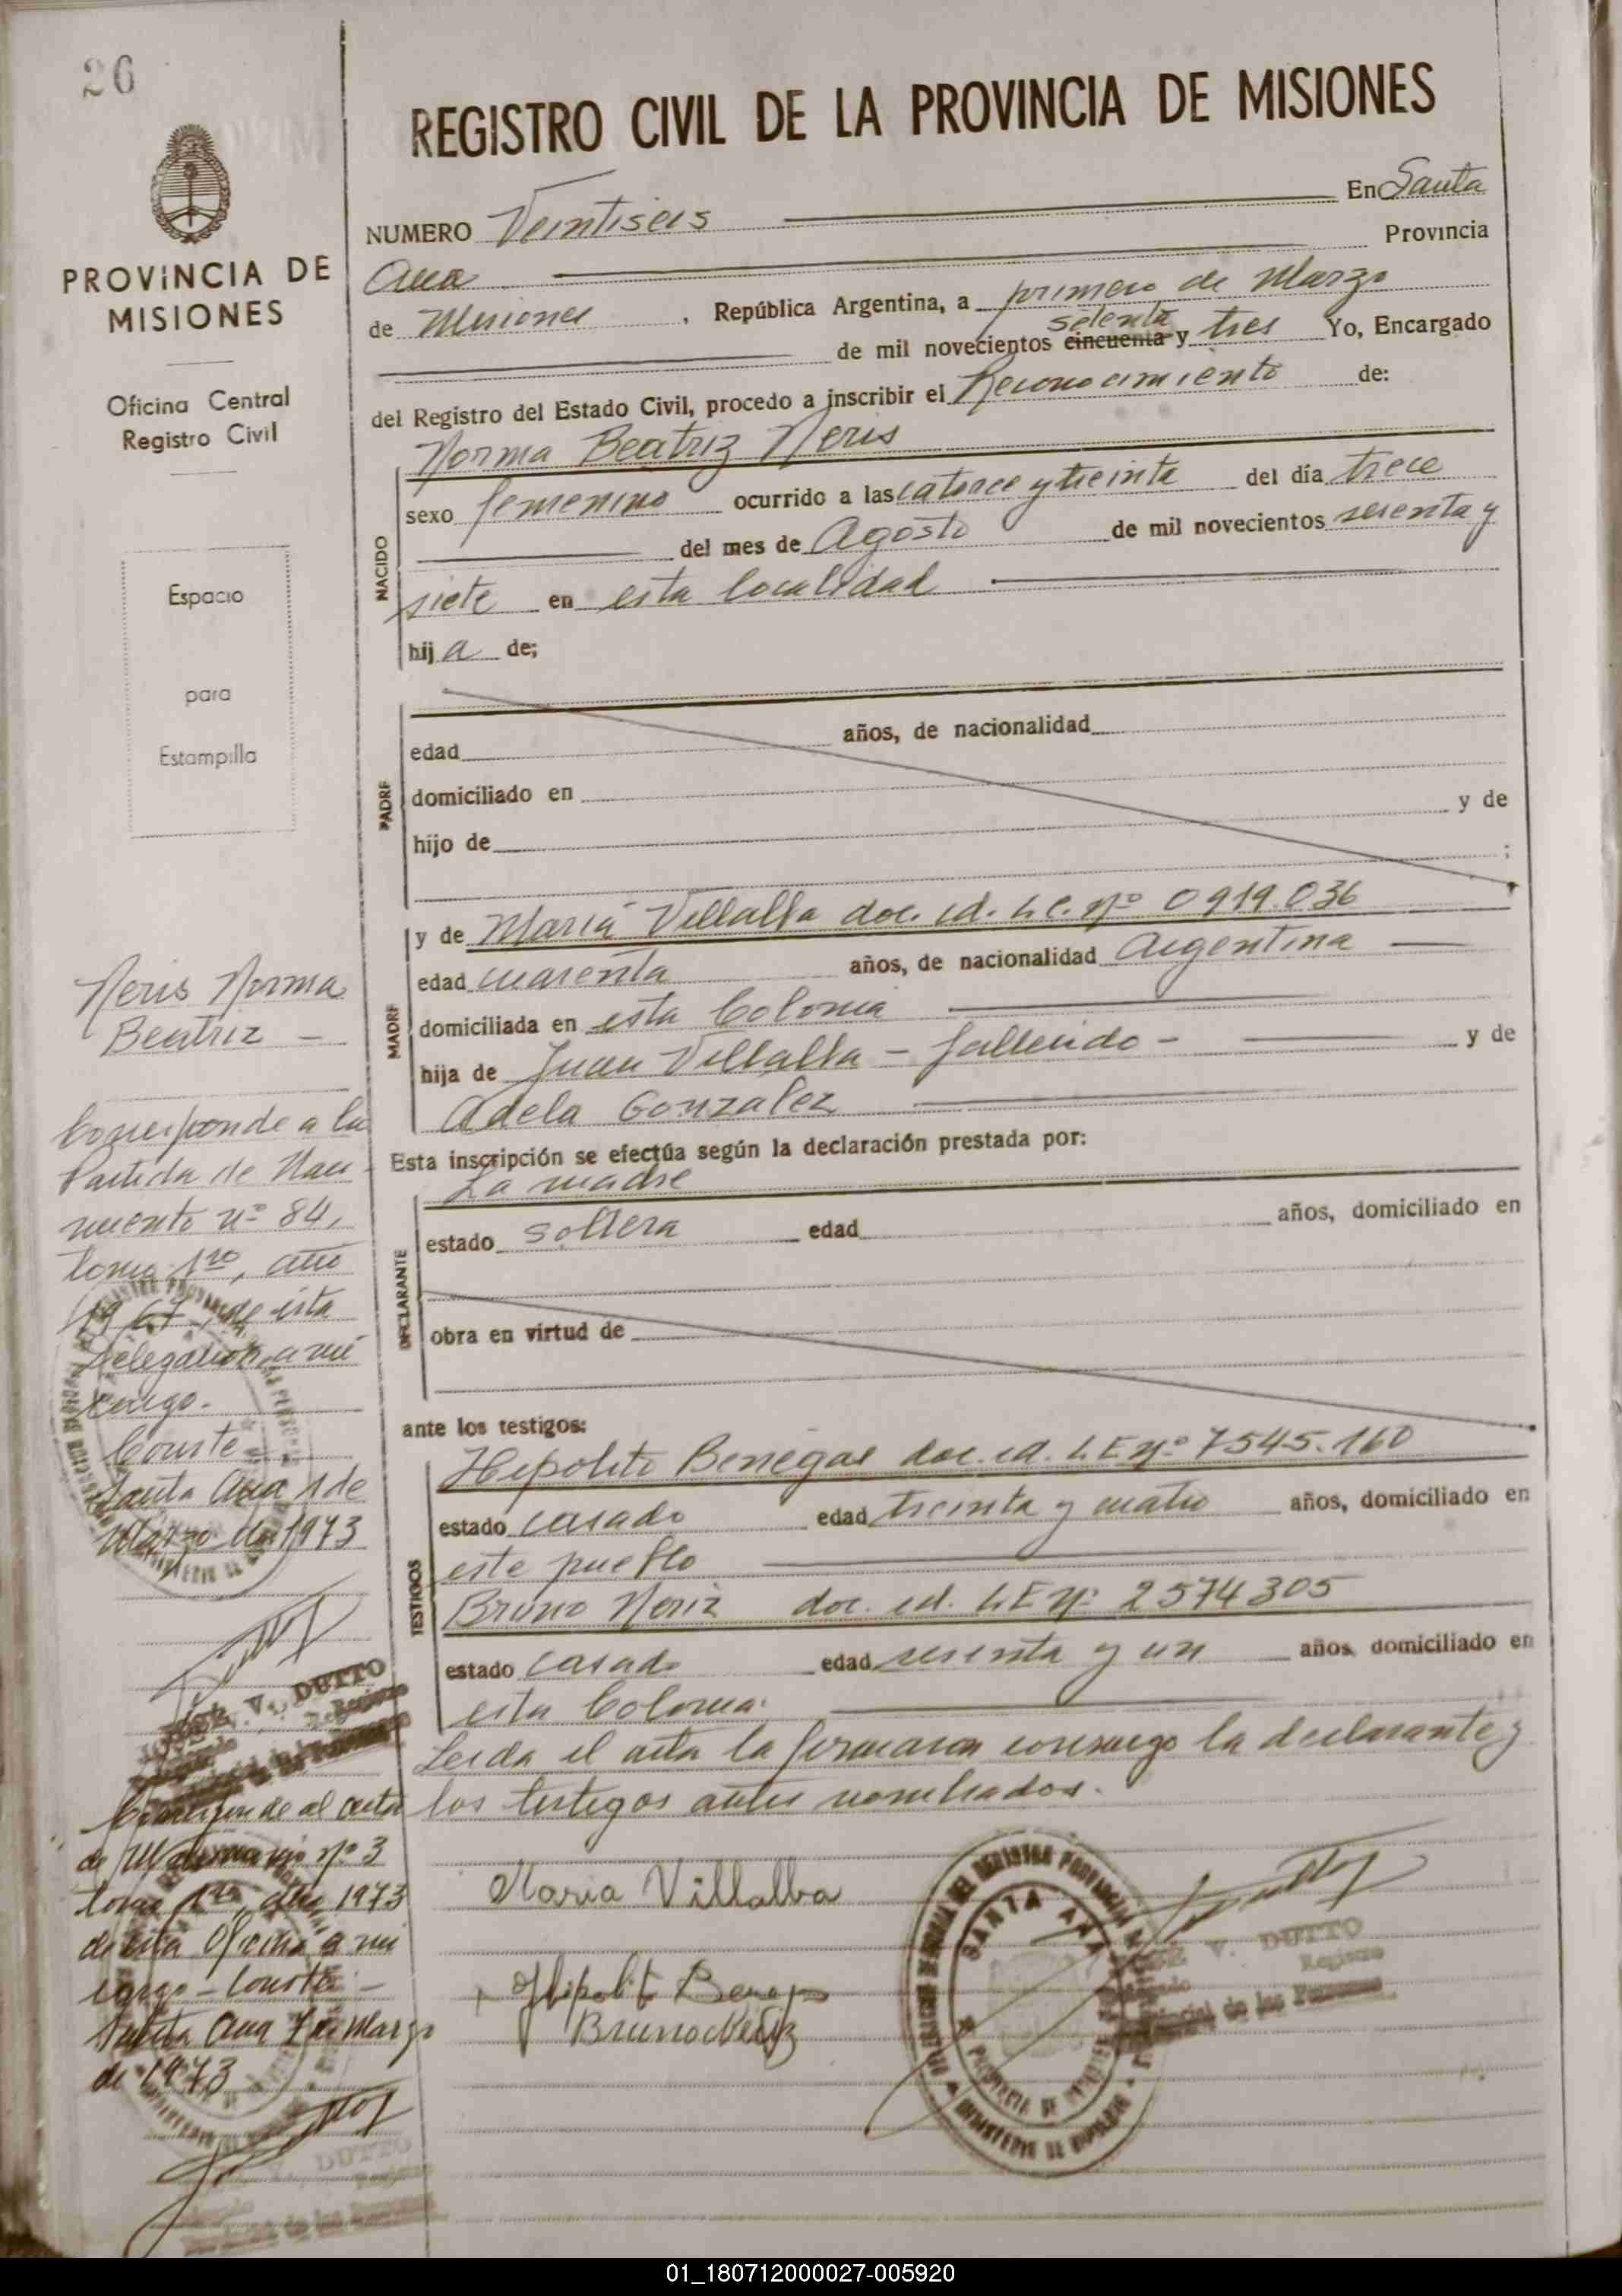 26
REGISTRO CIVIL DE LA PROVINCIA DE MISIONES
NUMERO Veintiseis En Santa
Ana Provincia
de Misiones, República Argentina, a primero de Marzo
setenta
de mil novecientos cincuenta y tres Yo, Encargado
del Registro del Estado Civil, procedo a inscribir el Reconocimiento de:
Norma Beatriz Neris
NACIDO
sexo femenino ocurrido a las catorce y treinta del día trece
del mes de Agosto de mil novecientos sesenta y
siete en esta localidad
hij a de;
PADRE
edad años, de nacionalidad
domiciliado en
hijo de y de
;
MADRE
y de Maria Villalba doc. id. L.C. nº 0919.036
edad cuarenta años, de nacionalidad Argentina
domiciliada en esta Colonia
hija de Juan Villalba - fallecido - y de
Adela Gonzalez
Esta inscripción se efectúa según la declaración prestada por:
DECLARANTE
La madre
estado soltera edad años, domiciliado en
obra en virtud de
ante los testigos:
TESTIGOS
Hipolito Benegas doc. id. L.E nº 7545.160
estado casado edad treinta y cuatro años, domiciliado en
este pueblo
Bruno Neriz doc. id. L.E nº 2574305
estado casado edad sesenta y un años, domiciliado en
esta Colonia
Leida el acta la firmaron conmigo la declarante y
los testigos antes nombrados.
Maria Villalba
Hipolit
Bruno Neriz
SANTA ANA
V. DUTTO
Registro
Provincial de las Personas
PROVINCIA DE
MISIONES
Oficina Central
Registro Civil
Espacio
para
Estampilla
Neris Norma
Beatriz -
Corresponde a la
Partida de Naci
miento nº 84,
tomo 1ro, año
1967, de esta
Delegación a mi
cargo.
Conste
Santa Ana 1 de
Marzo de 1973
JOSE V. DUTTO
Registro
Corresponde al acta
de nº 3
tomo 1ro, año 1973
de esta Oficina a mi
cargo - Conste -
Santa Ana 1 de Marzo
de 1973
DUTTO
01_180712000027-005920